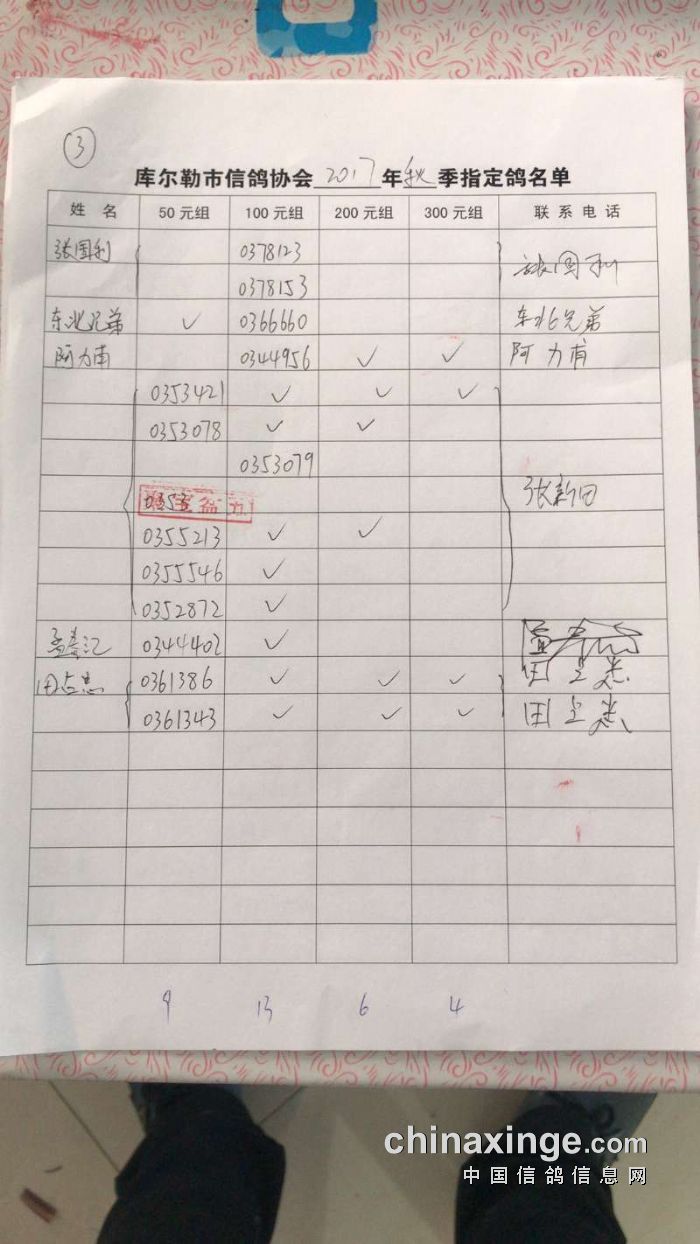 ③
库尔勒市信鸽协会 2017 年 秋 季指定鸽名单
姓 名 50元组 100元组 200元组 300元组 联系电话
张国利 0378123 张国利
0378153
东北兄弟 ✓ 0366660 东北兄弟
阿力甫 0344956 ✓ ✓ 阿力甫
0353421 ✓ ✓ ✓
0353078 ✓ ✓
0353079
张新田
0355213 ✓ ✓
0355546 ✓
0352872 ✓
0344402 ✓
田占忠 0361386 ✓ ✓ ✓ 田
0361343 ✓ ✓ ✓ 田
9 13 6 4
chinaxinge.com
中国信鸽信息网